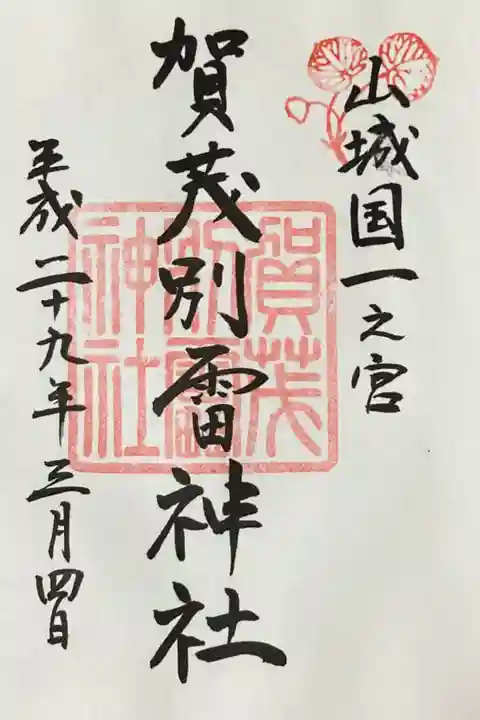 山城国一之宮
賀茂別雷神社
賀茂
別雷
神社
平成二十九年三月四日